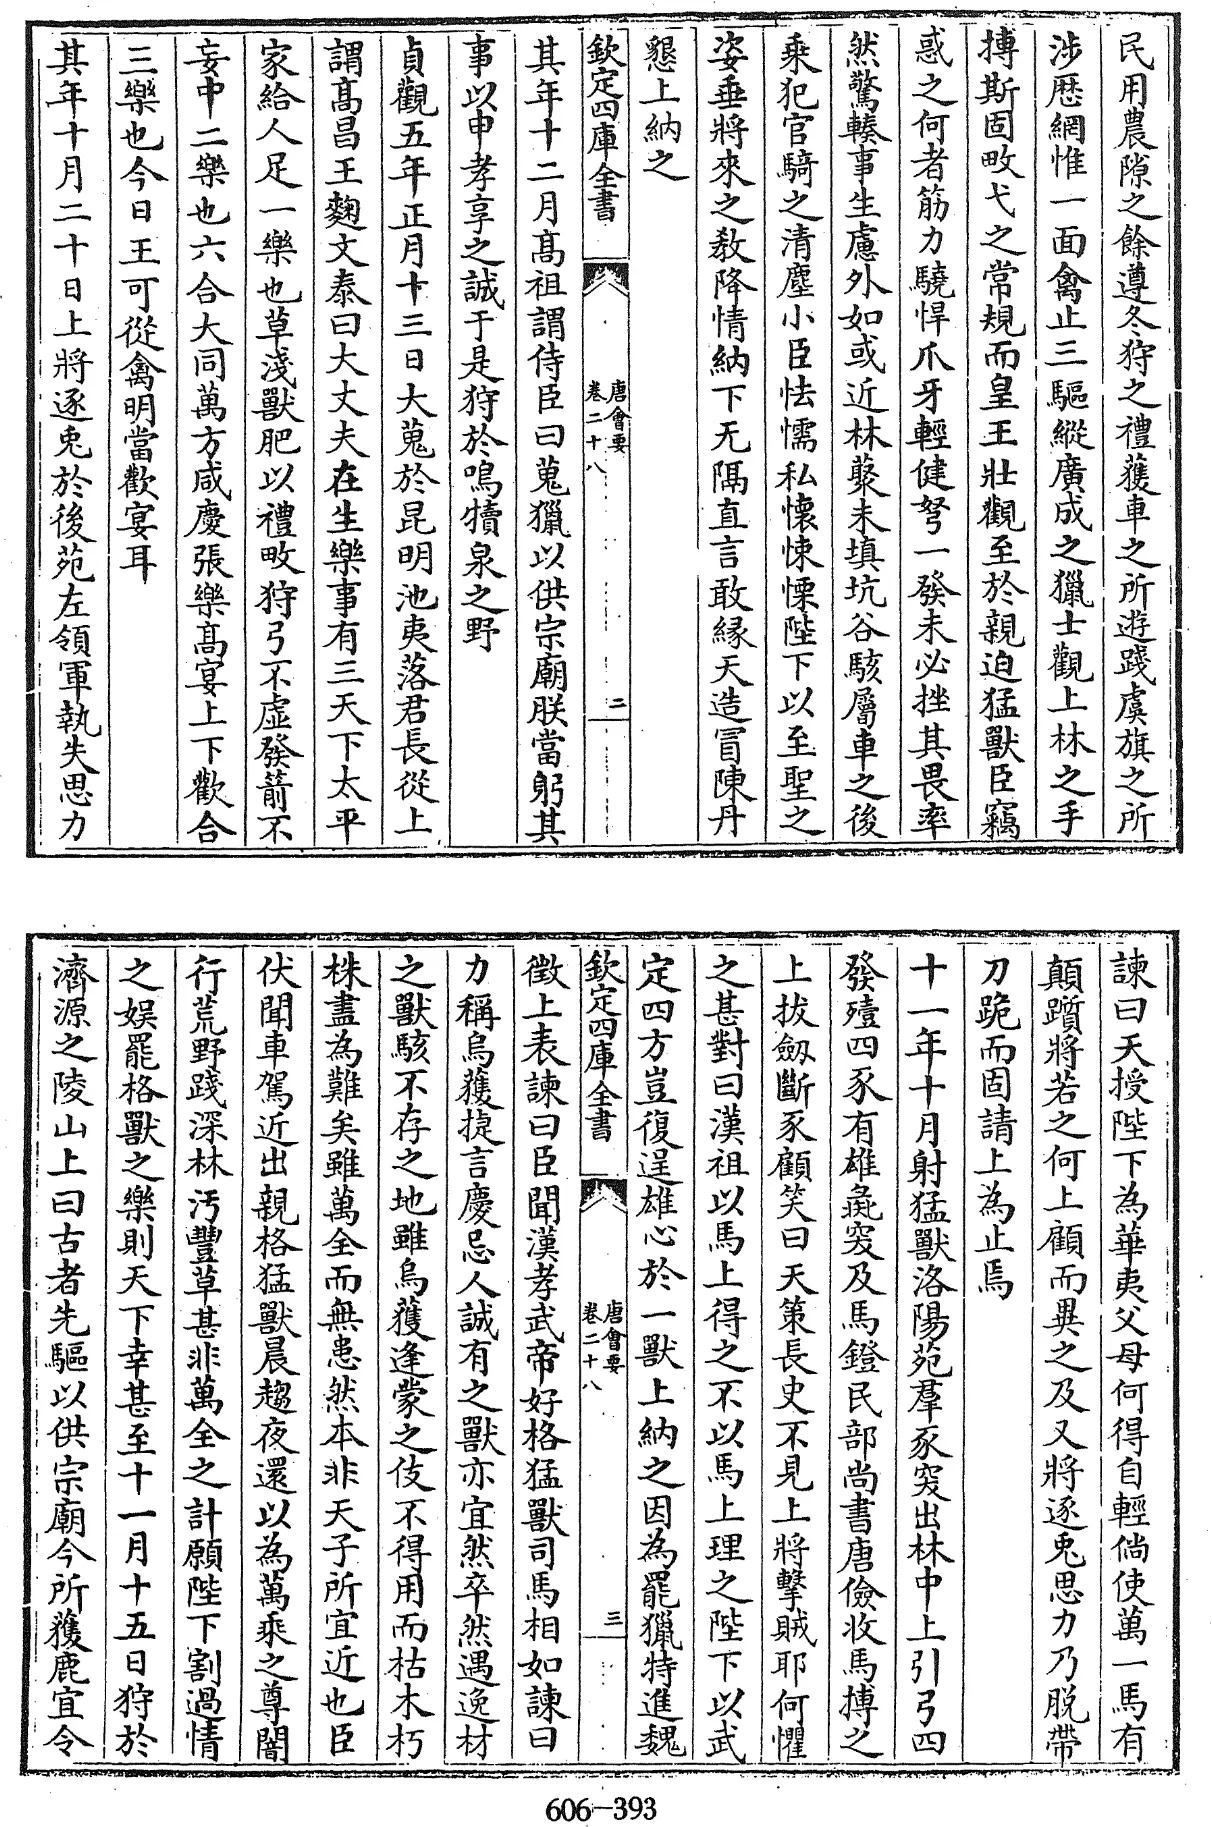 民用農隙之餘遵冬狩之禮獲車之所游踐虞旗之所
涉歷網惟一面禽止三驅縱廣成之獵士觀上林之手
搏斯固畋弋之常規而皇王壯觀至於親迫猛獸臣竊
惑之何者筋力驍悍爪牙輕健弩一發未必挫其畏率
然驚轃事生慮外如或近林藂未填坑谷駭屬車之後
乘犯官騎之清塵小臣怯懦私懐悚慄陛下以至聖之
姿垂將來之教降情納下无隔直言敢緣天造冒陳丹
懇上納之
欽定四庫全書
唐會要
卷二十八
二
其年十二月高祖謂侍臣曰蒐獵以供宗廟朕當躬其
事以申孝享之誠于是狩於鳴犢泉之野
貞觀五年正月十三日大蒐於昆明池夷落君長從上
謂高昌王麴文泰曰大丈夫在生樂事有三天下太平
家給人足一樂也草淺獸肥以禮畋狩弓不虛發箭不
妄中二樂也六合大同萬方咸慶張樂高宴上下歡合
三樂也今日王可從禽明當歡宴耳
其年十月二十日上將逐兎於後苑左領軍執失思力
諫曰天授陛下為華夷父母何得自輕倘使萬一馬有
顛躓將若之何上顧而異之及又將逐兎思力乃脱帶
刀跪而固請上為止焉
十一年十月射猛獸洛陽苑羣豕突出林中上引弓四
發殪四豕有雄彘突及馬鐙民部尚書唐儉收馬搏之
上拔劔斷豕顧笑曰天策長史不見上將擊賊耶何懼
之甚對曰漢祖以馬上得之不以馬上理之陛下以武
定四方豈復逞雄心於一獸上納之因為罷獵特進魏
欽定四庫全書
唐會要
卷二十八
三
徵上表諫曰臣聞漢孝武帝好格猛獸司馬相如諫曰
力稱烏獲捷言慶忌人誠有之獸亦宜然卒然遇逸材
之獸駭不存之地雖烏獲逢蒙之伎不得用而枯木朽
株盡為難矣雖萬全而無患然本非天子所宜近也臣
伏聞車駕近出親格猛獸晨趨夜還以為萬乘之尊闇
行荒野踐深林汚豐草甚非萬全之計願陛下割過情
之娱罷格獸之樂則天下幸甚至十一月十五日狩於
濟源之陵山上曰古者先驅以供宗廟今所獲鹿宜令
606-393